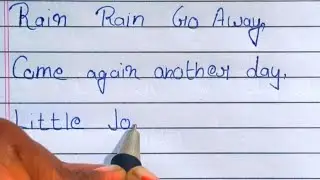 Rain Rain Go Away,
Come again another day,
Little Jo